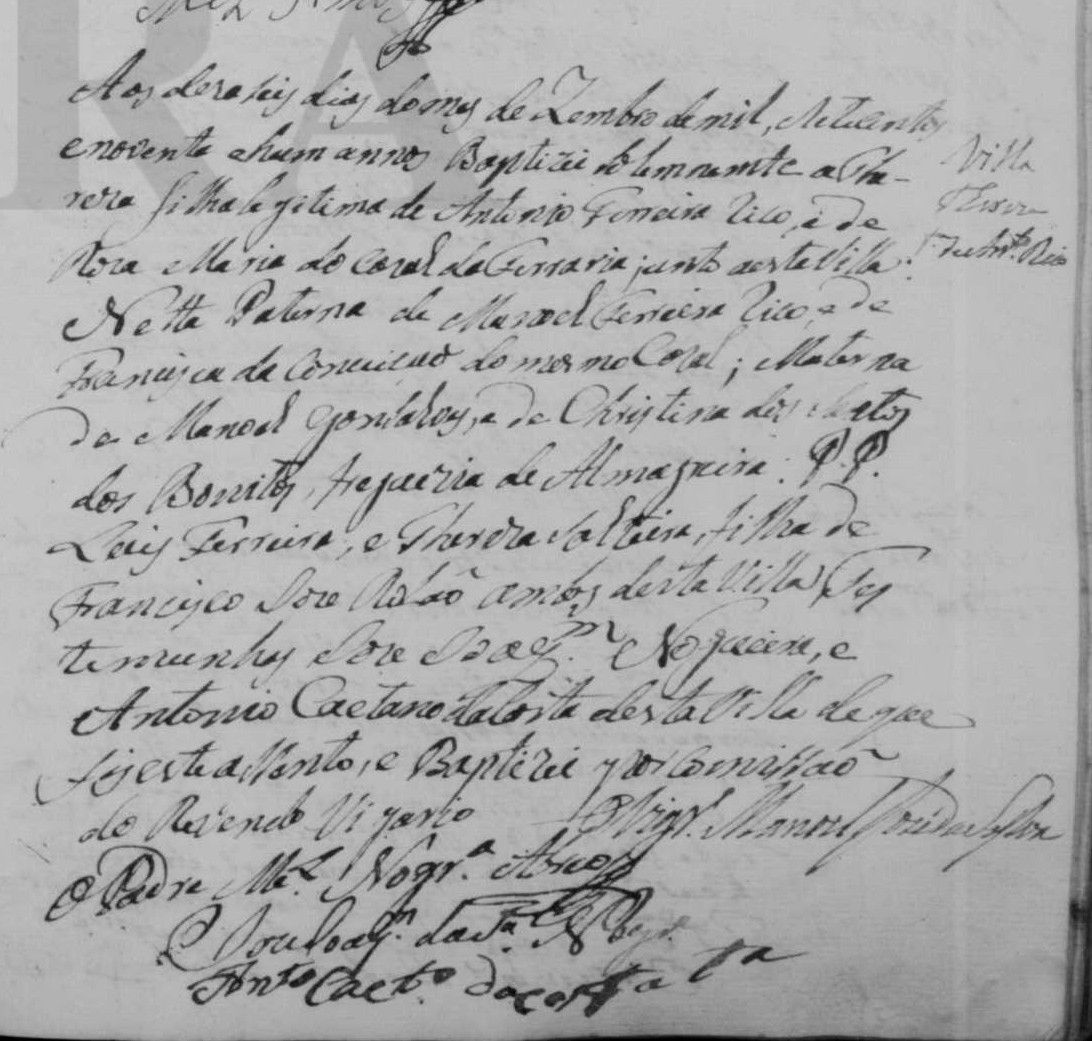 RA
Aos dezaseis dias do mes de Zembro de mil, setecentos
e noventa e hum annos Baptizei solemnemte a The-
reza filha legitima de Antonio Ferreira Rico, e de
Roza Maria do Cazal da Ferraria junto a esta Villa.
Netta Paterna de Manoel Ferreira Rico, e de
Francisca da Conceicaõ do mesmo Cazal; Materna
de Manoel Gonsalves, e de Christina dos Santos
dos Bonitos, freguezia de Almagreira. P.P.
Luis Ferreira, e Thereza Solteira, filha de
Francisco Joze ambos desta Villa Tes
temunhas Joze Joaq.m Nogueira, e
Antonio Caetano da Costa desta Villa de que
fis este assento, e Baptizei por Comissaõ
do Reverendo Vigario
Villa
Thereza
f. de Ant.º Rico
O Vigr.º Manoel
O Padre M.el Nogr.ª
Joze Joaq.m da S.ª Nogr.ª
Ant.º Caet.º da Costa